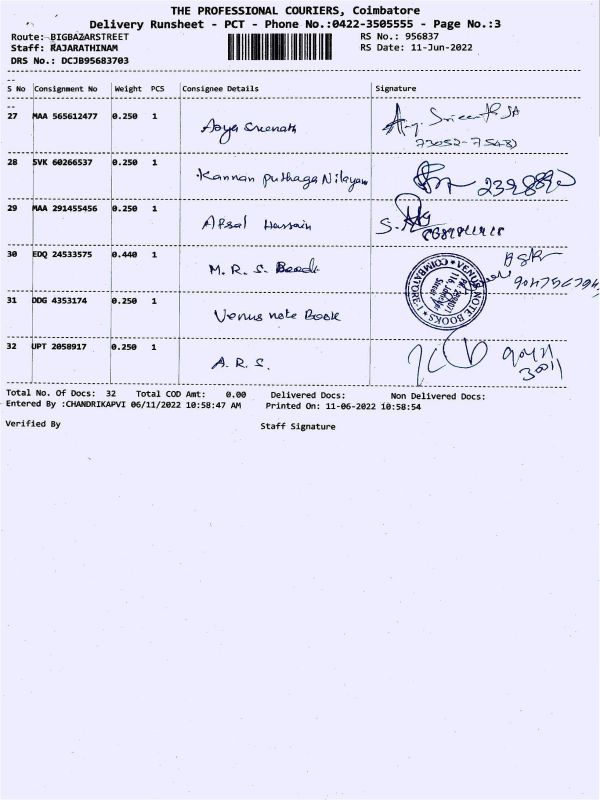 THE PROFESSIONAL COURIERS, Coimbatore
Delivery Runsheet - PCT - Phone No.:0422-3505555 - Page No.:3
Route: BIGBAZARSTREET RS No.: 956837
Staff: RAJARATHINAM RS Date: 11-Jun-2022
DRS No.: DCJB95683703
S No Consignment No Weight PCS Consignee Details Signature
27 MAA 565612477 0.250 1 Aoya Sreenath
28 SVK 60266537 0.250 1 Kannan puthaga Nilayam
29 MAA 291455456 0.250 1 Afsal Hussain
30 EDQ 24533575 0.440 1 M. R. S.
31 DDG 4353174 0.250 1 Venus note Book
VENUS NOTE BOOKS * COIMBATORE-1 *
32 UPT 2058917 0.250 1 A. R. S.
Total No. Of Docs: 32 Total COD Amt: 0.00 Delivered Docs: Non Delivered Docs:
Entered By :CHANDRIKAPVI 06/11/2022 10:58:47 AM Printed On: 11-06-2022 10:58:54
Verified By Staff Signature